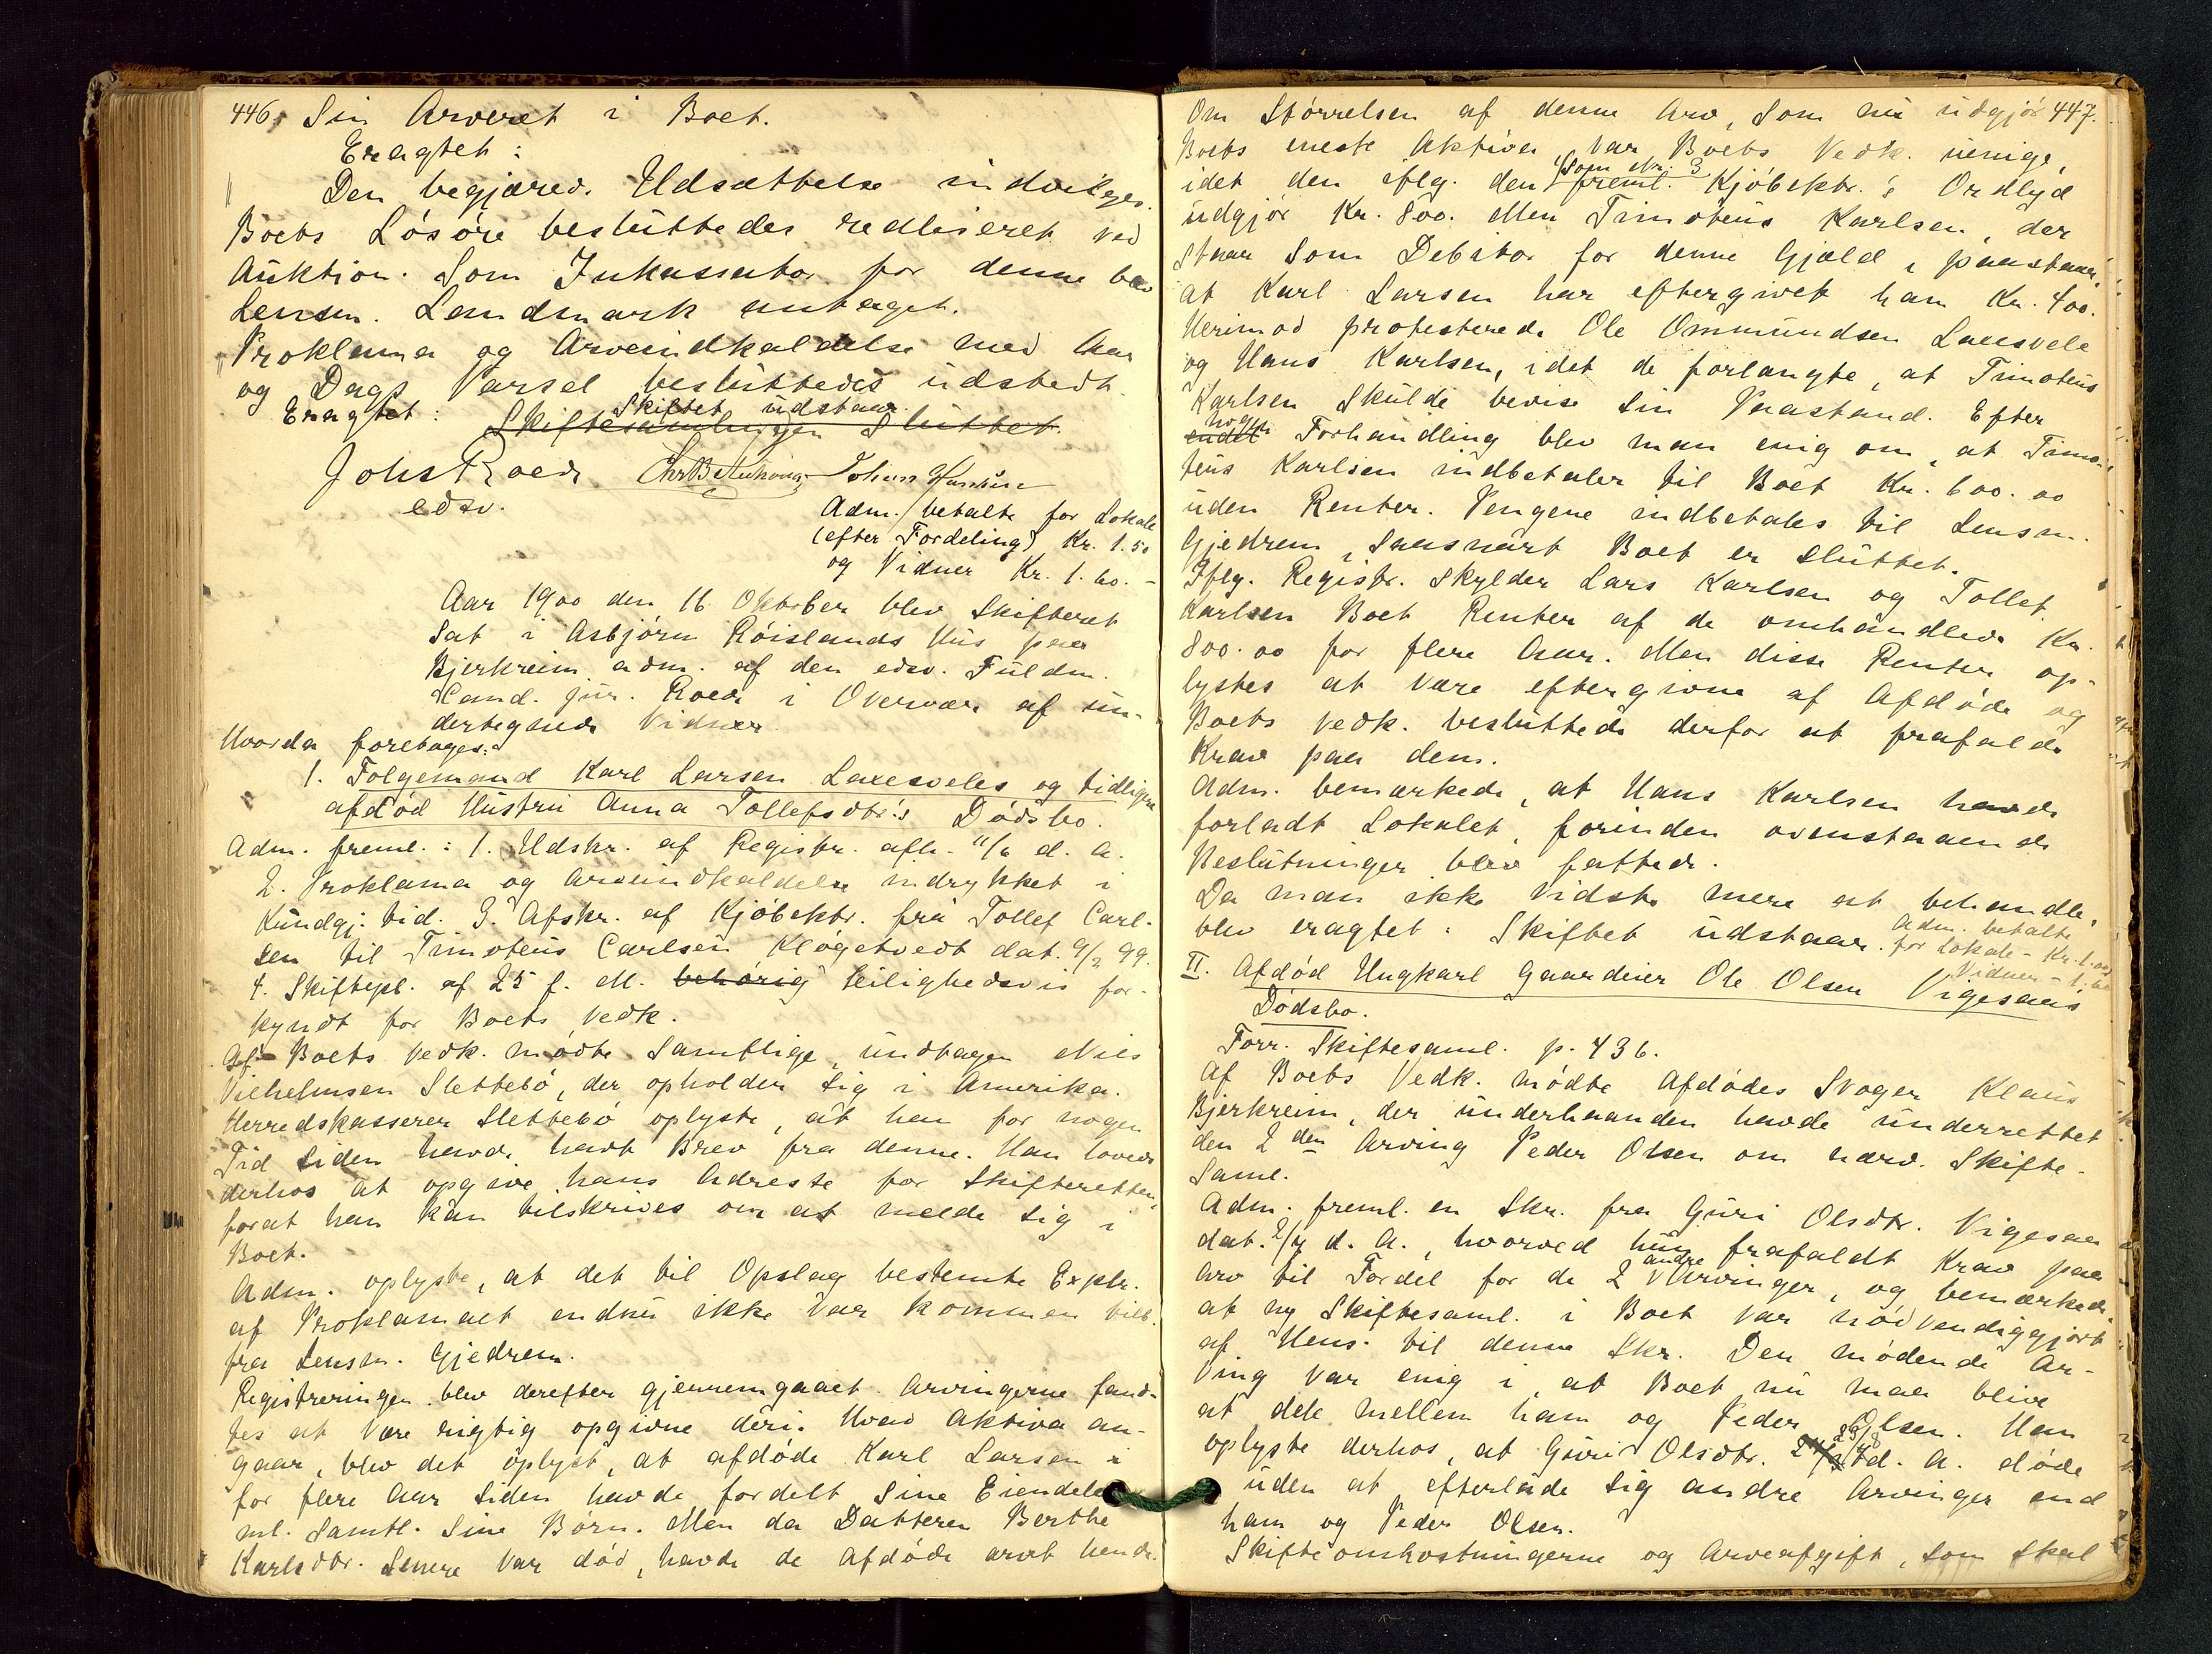 446. Sin Arveret i Boet.
Eragtet:
Den begjærede Udsættelse indvilges.
Boets Løsøre besluttedes realiseret ved
Auktion. Som Inkassator for denne blev
Lensm. Landmark antaget.
Proklama og Arveindkaldelse med Aar
og Dags Varsel besluttedes udstedt.
Eragtet: Skiftet udstaar.
Skiftesamlingen sluttet.
Johs Roede
edsv.
Adm. betalte for Lokale
(efter Fordeling) Kr. 1.50
og Vidner Kr. 1.60.-
Aar 1900 den 16 Oktober blev Skifteret
sat i Asbjørn Røislands Hus paa
Bjerkreim adm. af den edsv. Fuldm.
Cand. jur. Roede i Overvær af un-
dertegnede Vidner.
Hvorda foretages:
1. Følgemand Karl Larsen Lauesveles og tidligere
afdød Hustru Anna Tollefsdtr's Dødsbo.
Adm. freml.: 1. Udskr. af Registr. afh. 11/6 d. A.
2. Proklama og Arveindkaldelse indrykket i
Kundgj. tid. 3. Afskr. af Kjøbektr. fra Tollef Carl-
sen til Timoteus Carlsen Kløgetvedt dat. 9/2 99.
4. Skiftepl. af 25 f. M. behørig leilighedsvis for-
kyndt for Boets Vedk.
Af Boets Vedk. mødte samtlige, undtagen Nils
Vilhelmsen Slettebø, der opholder sig i Amerika.
Herredskasserer Slettebø oplyste, at han for nogen
Tid siden havde havt Brev fra denne. Han lovede
derhos at opgive hans Adresse for Skifteretten,
forat han kan tilskrives om at melde sig i
Boet.
Adm. oplyste, at det til Opslag bestemte Explr.
af Proklamaet endnu ikke var kommen tilb.
fra Lensm. Gjedrem.
Registreringen blev derefter gjennemgaaet. Arvingerne fand-
tes at være rigtig opgivne deri. Hvad Aktiva an-
gaar, blev det oplyst, at afdøde Karl Larsen i
for flere Aar siden havde fordelt sine Eiendele
ml. samtl. sine Børn. Men da Datteren Berthe
Karlsdtr. senere var død, havde de Afdøde arvet hende.
Om Størrelsen af denne Arv, som nu udgjør 447.
Boets eneste Aktiva, var Boets Vedk. uenige,
idet den iflg. den som Nr. 3 freml. Kjøbektr.'s Ordlyd
udgjør Kr. 800. Men Timoteus Karlsen, der
staar som Debitor for denne Gjæld, paastaar,
at Karl Larsen har eftergivet ham Kr. 400.
Herimod protesterede Ole Ommundsen Lauesvele
og Hans Karlsen, idet de forlangte, at Timoteus
Karlsen skulde bevise sin Paastand. Efter
endel nogen Forhandling blev man enig om, at Timo-
teus Karlsen indbetaler til Boet Kr. 600.00
uden Renter. Pengene indbetales til Lensm.
Gjedrem, saasnart Boet er sluttet.
Iflg. Registr. skylder Lars Karlsen og Tollef
Karlsen Boet Renter af de omhandlede Kr.
800.00 for flere Aar. Men disse Renter op-
lystes at være eftergivne af Afdøde og
Boets Vedk. besluttede derfor at frafalde
Krav paa dem.
Adm. bemærkede, at Hans Karlsen havde
forladt Lokalet, forinden ovenstaaende
Beslutninger blev fattede.
Da man ikke vidste mere at behandle,
blev eragtet: Skiftet udstaar.
Adm. betalte
for Lokale - Kr. 1.00
Vidner - 1.60
II. Afdød Ungkarl Gaardeier Ole Olsen Vigesaas
Dødsbo.
Forr. Skiftesaml. p. 436.
Af Boets Vedk. mødte Afdødes Svoger Klaus
Bjerkreim, der underhaanden havde underrettet
den 2den Arving Peder Olsen om nærv. Skifte-
saml.
Adm. freml. en Skr. fra Guri Olsdtr. Vigesaa
dat. 2/7 d. A., hvorved hun frafaldt Krav paa
Arv til Fordel for de 2 andre Arvinger, og bemærkede
at ny Skiftesaml. i Boet var nødvendiggjort
af Hens. til denne Skr. Den mødende Ar-
ving var enig i, at Boet nu maa blive
at dele mellem ham og Peder Olsen. Han
oplyste derhos, at Guri Olsdtr. 23/8 d. A. døde
uden at efterlade sig andre Arvinger end
ham og Peder Olsen.
Skifteomkostningerne og Arveafgift, som skal